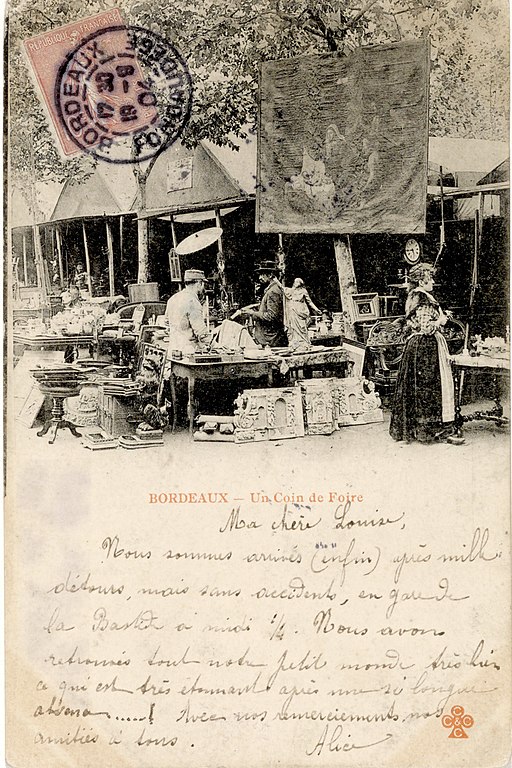 REPUBLIQUE FRANÇAISE
BORDEAUX
17 30
8 - 9
02
GIRONDE
BORDEAUX — Un Coin de Foire
Ma chère Louise,
Nous sommes arrivés (enfin) après mille
détours, mais sans accidents, en gare de
la Bastide à midi 1/4. Nous avons
retrouvés tout notre petit monde très bien
ce qui est très étonnant après une si longue
absence.....! Avec nos remerciements, nos
amitiés à tous.
Alice
C C C C